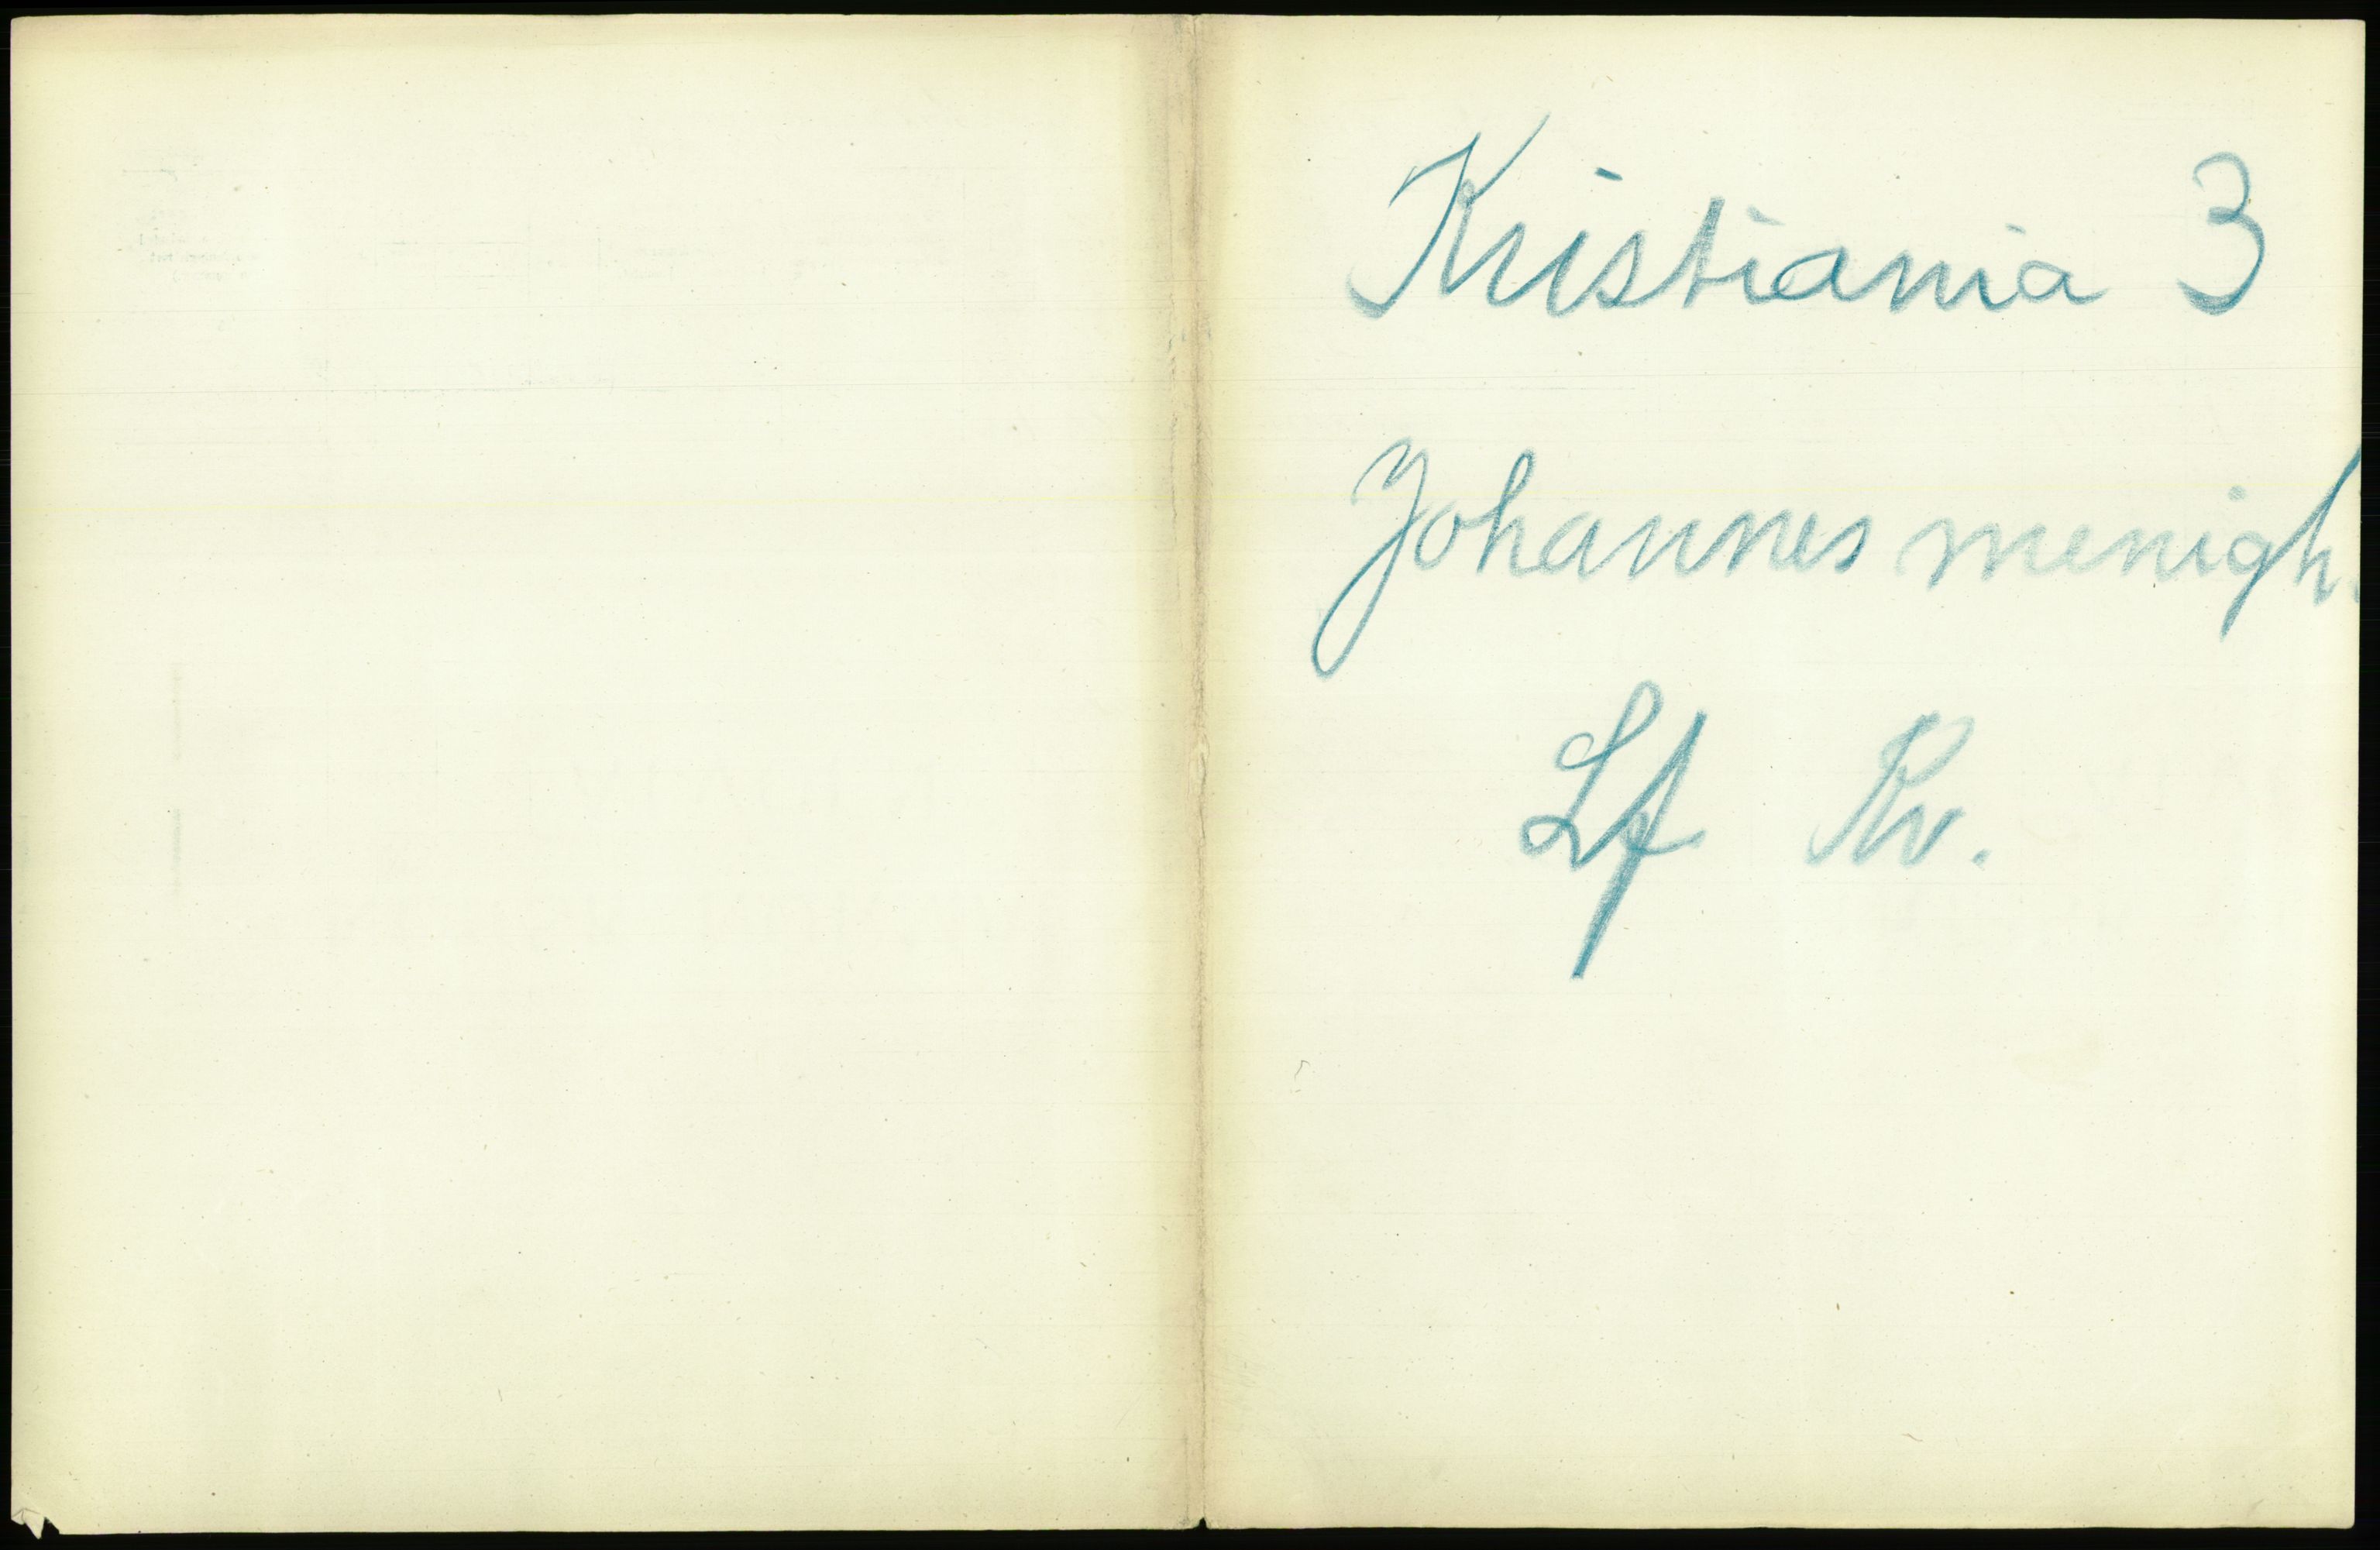 Kristiania 3
Johannes menigh.
Lf Kv.